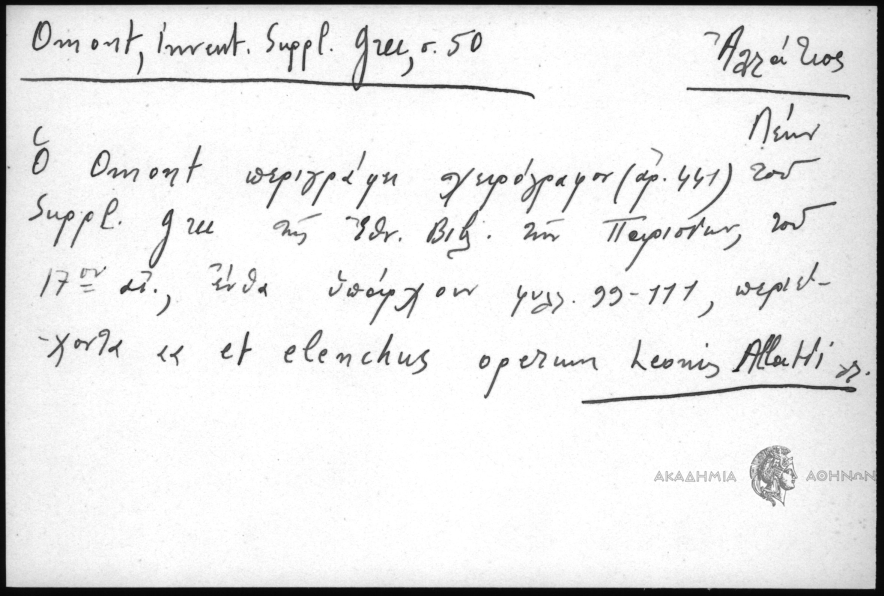 Omont, invent. Suppl. Grec, σ. 50
Ἀλλάτιος
Λέων
Ὁ Omont περιγράφει χειρόγραφον (ἀρ. 441) τοῦ
Suppl. Grec τῆς Ἐθν. Βιβ. τῶν Παρισίων, τοῦ
17ου αἰ., ἔνθα ὑπάρχουν φυλλ. 99-111, περιέ-
-χοντα et elenchus operum Leonis Allatti
ΑΚΑΔΗΜΙΑ ΑΘΗΝΩΝ